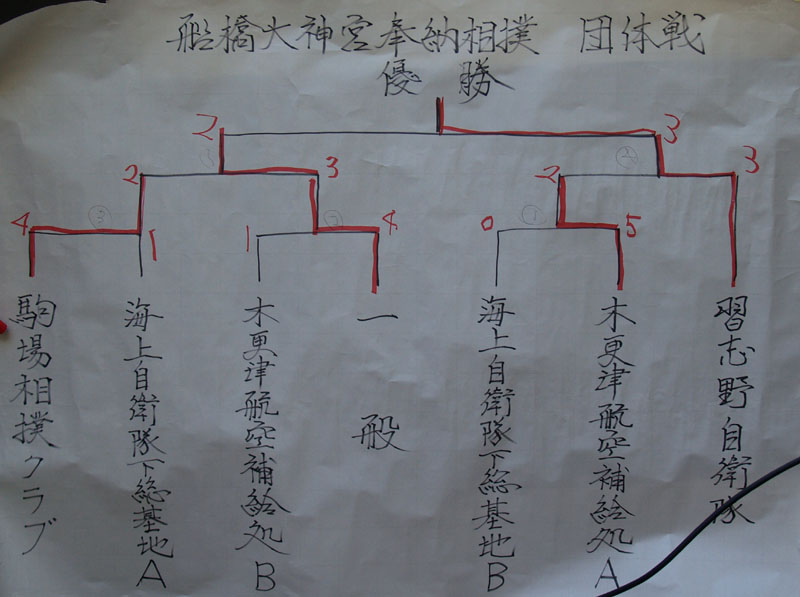 船橋大神宮奉納相撲 団体戦
優勝
2 3
2 3 2 3
4 1 1 4 0 5
② ② ③ ② ①
駒場相撲クラブ
海上自衛隊下総基地A
木更津航空補給処B
一般
海上自衛隊下総基地B
木更津航空補給処A
習志野自衛隊